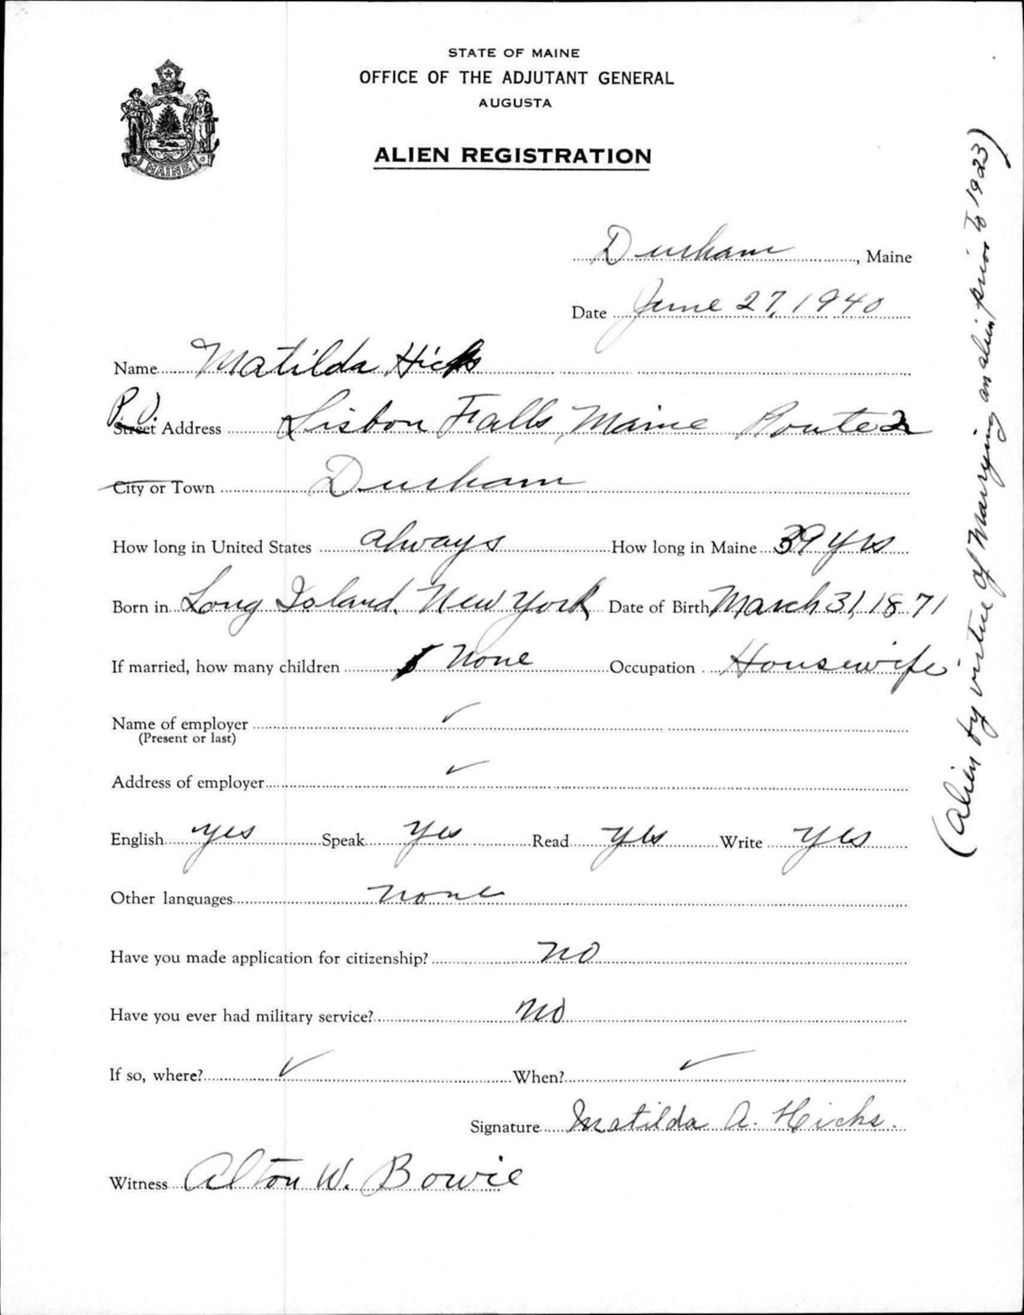 STATE OF MAINE
OFFICE OF THE ADJUTANT GENERAL
AUGUSTA
ALIEN REGISTRATION
MAINE
Durham, Maine
Date June 27, 1940
Name Matilda Hicks
P.O.
Street Address Lisbon Falls, Maine Route 2
City or Town Durham
How long in United States always How long in Maine 39 yrs
Born in Long Island, New York Date of Birth March 31, 1871
If married, how many children None Occupation Housewife
Name of employer ✓
(Present or last)
Address of employer ✓
English yes Speak yes Read yes Write yes
Other languages none
Have you made application for citizenship? no
Have you ever had military service? no
If so, where? ✓ When? ✓
Signature Matilda A. Hicks.
Witness Alton W. Bowie
(Alien by virtue of Marrying an alien prior to 1923)